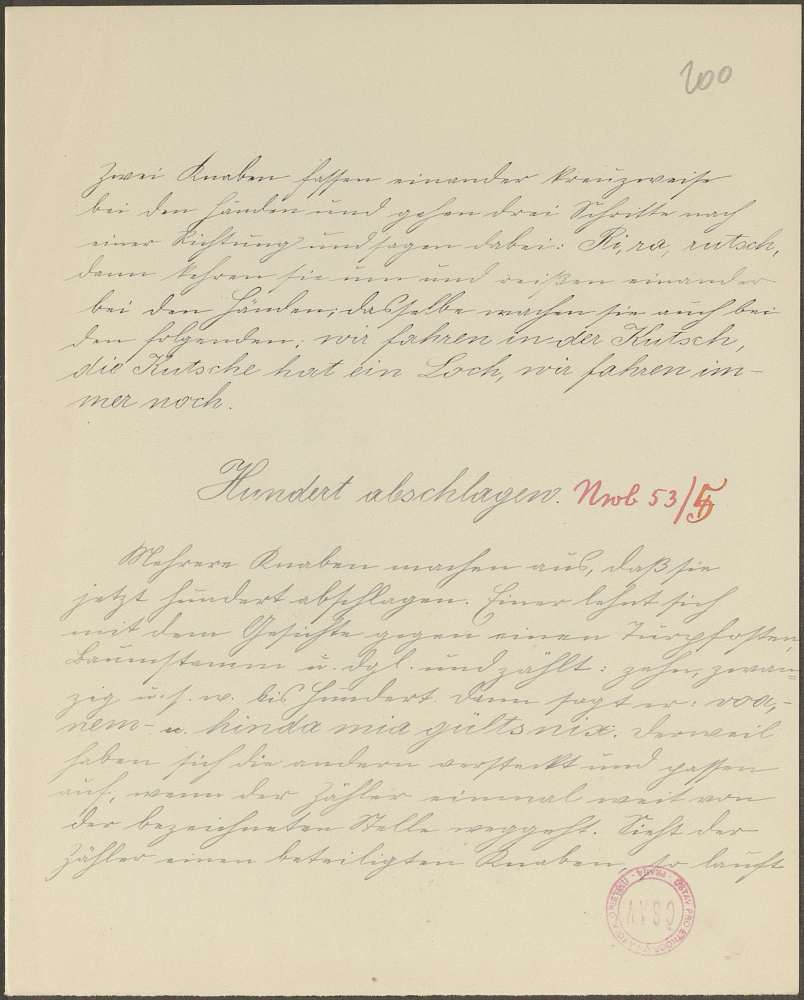 200
Zwei Knaben fassen einander kreuzweise
bei den Händen und gehen drei Schritte nach
einer Richtung und sagen dabei: Ri, ra, rutsch,
dann kehren sie um und reißen einander
bei den Händen; dasselbe machen sie auch bei
den folgenden: wir fahren in der Kutsch,
die Kutsche hat ein Loch, wir fahren im-
mer noch.
Hundert abschlagen. Nwb 53/5
Mehrere Knaben machen aus, daß sie
jetzt hundert abschlagen. Einer lehnt sich
mit dem Gesichte gegen einen Türpfosten,
Baumstamm u. dgl. und zählt: zehn, zwan-
zig u. s. w. bis hundert. Dann sagt er: voa,-
nem- u. hinda mia gültsnix. Derweil
haben sich die andern versteckt und passen
auf, wenn der Zähler einmal weit von
der bezeichneten Stelle weggeht. Sieht der
Zähler einen beteiligten Knaben, so lauft
ČSAV